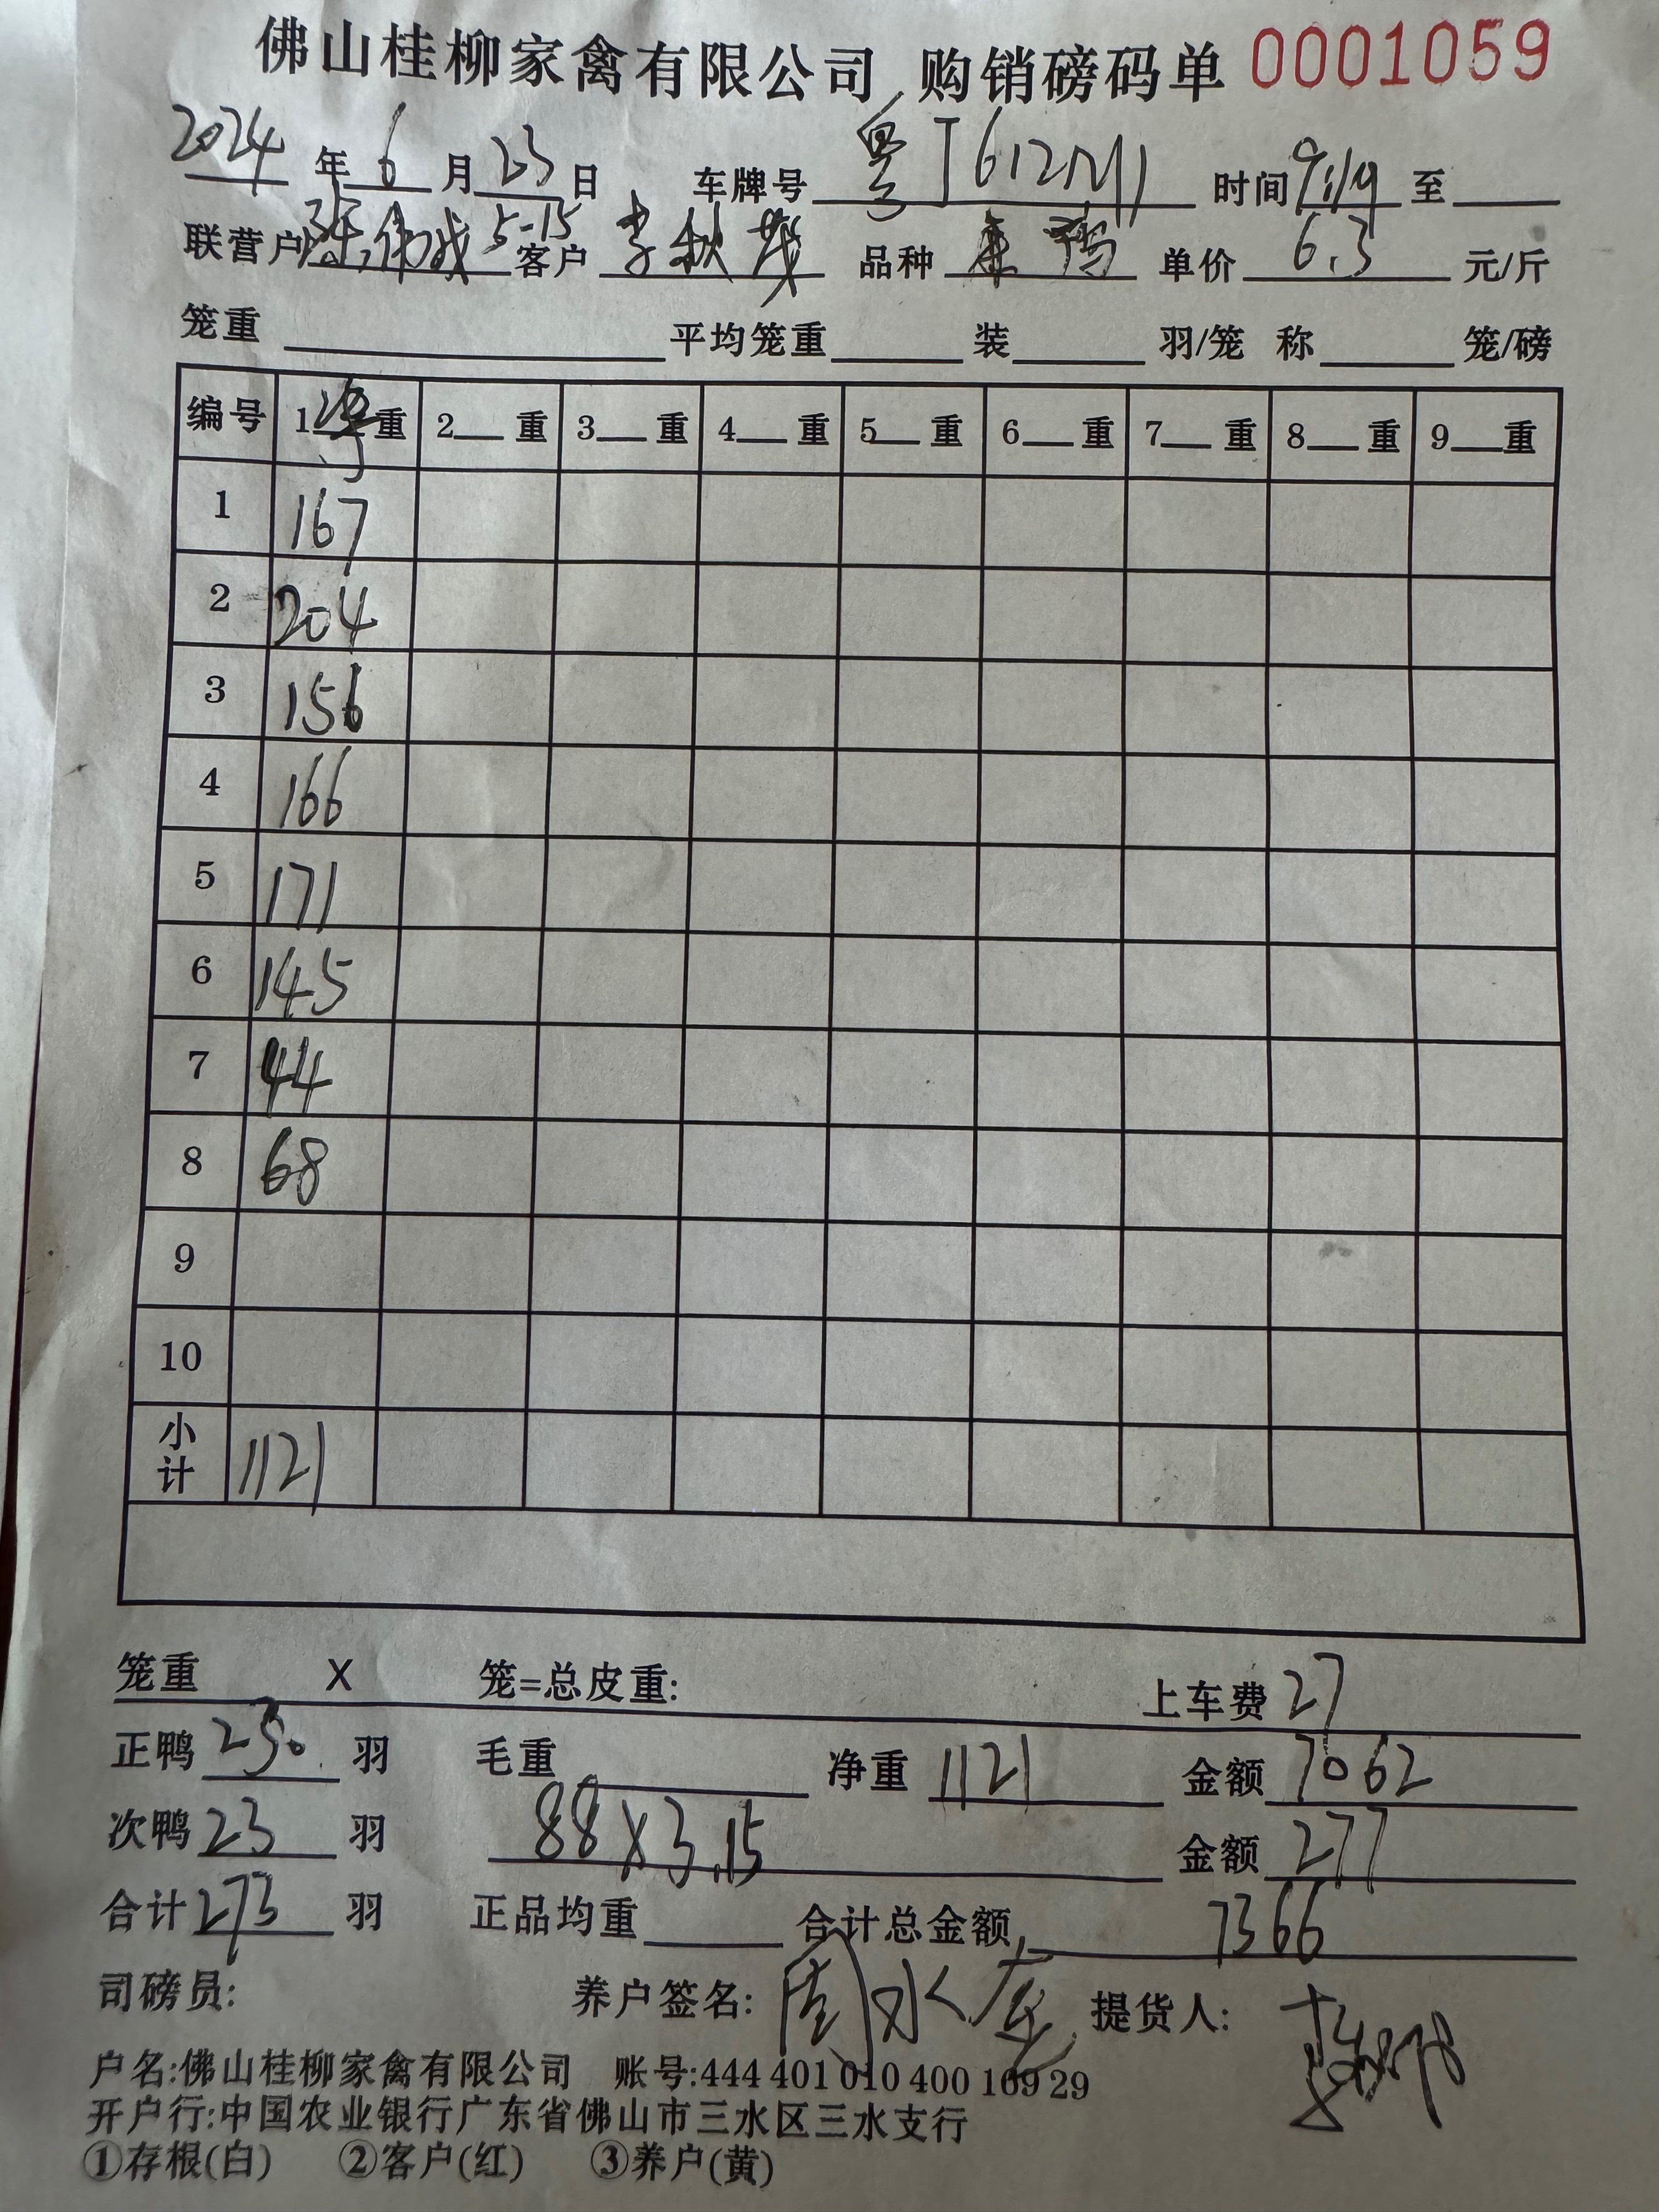 佛山桂柳家禽有限公司 购销磅码单 0001059
2024 年 6 月 23 日 车牌号 粤J612 时间 9:19 至
联营户 伟成 5-15 客户 李秋 品种 单价 6.3 元/斤
笼重 平均笼重 装 羽/笼 称 笼/磅
编号 1 重 2 重 3 重 4 重 5 重 6 重 7 重 8 重 9 重
1 167
2 204
3 156
4 166
5 171
6 145
7 44
8 68
9
10
小计 1121
笼重 X 笼=总皮重: 上车费 27
正鸭 250 羽 毛重 净重 1121 金额 7062
次鸭 23 羽 88X3.15 金额 277
合计 273 羽 正品均重 合计总金额 7366
司磅员: 养户签名: 水 提货人:
户名:佛山桂柳家禽有限公司 账号:444 401 010 400 169 29
开户行:中国农业银行广东省佛山市三水区三水支行
①存根(白) ②客户(红) ③养户(黄)